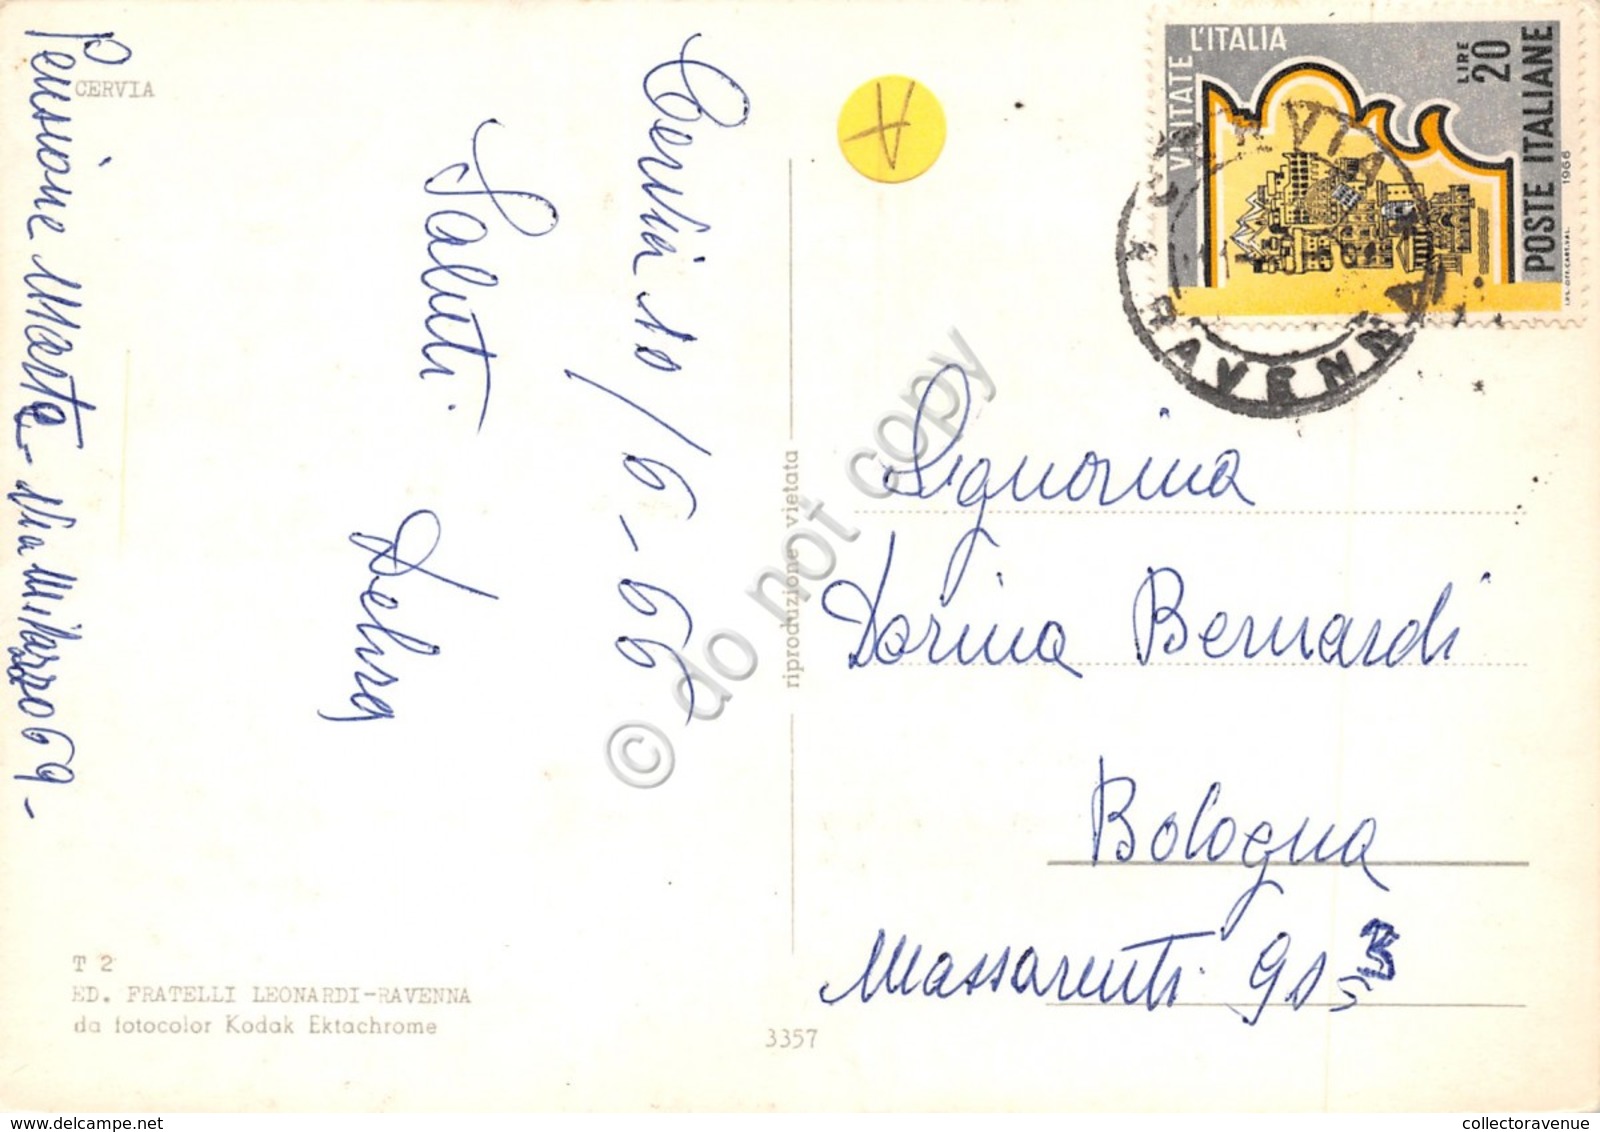 CERVIA
Pensione Marta - Via Milazzo 69 -
Cervia 10/6-66
Saluti.
T 2
ED. FRATELLI LEONARDI-RAVENNA
da fotocolor Kodak Ektachrome
riproduzione vietata
3357
A
VISITATE L'ITALIA
LIRE 20
POSTE ITALIANE
1966
CERVIA
RAVENNA
Signorina
Dorina Bernardi
Bologna
Massarenti
© do not copy
collectoravenue-delcampe.net